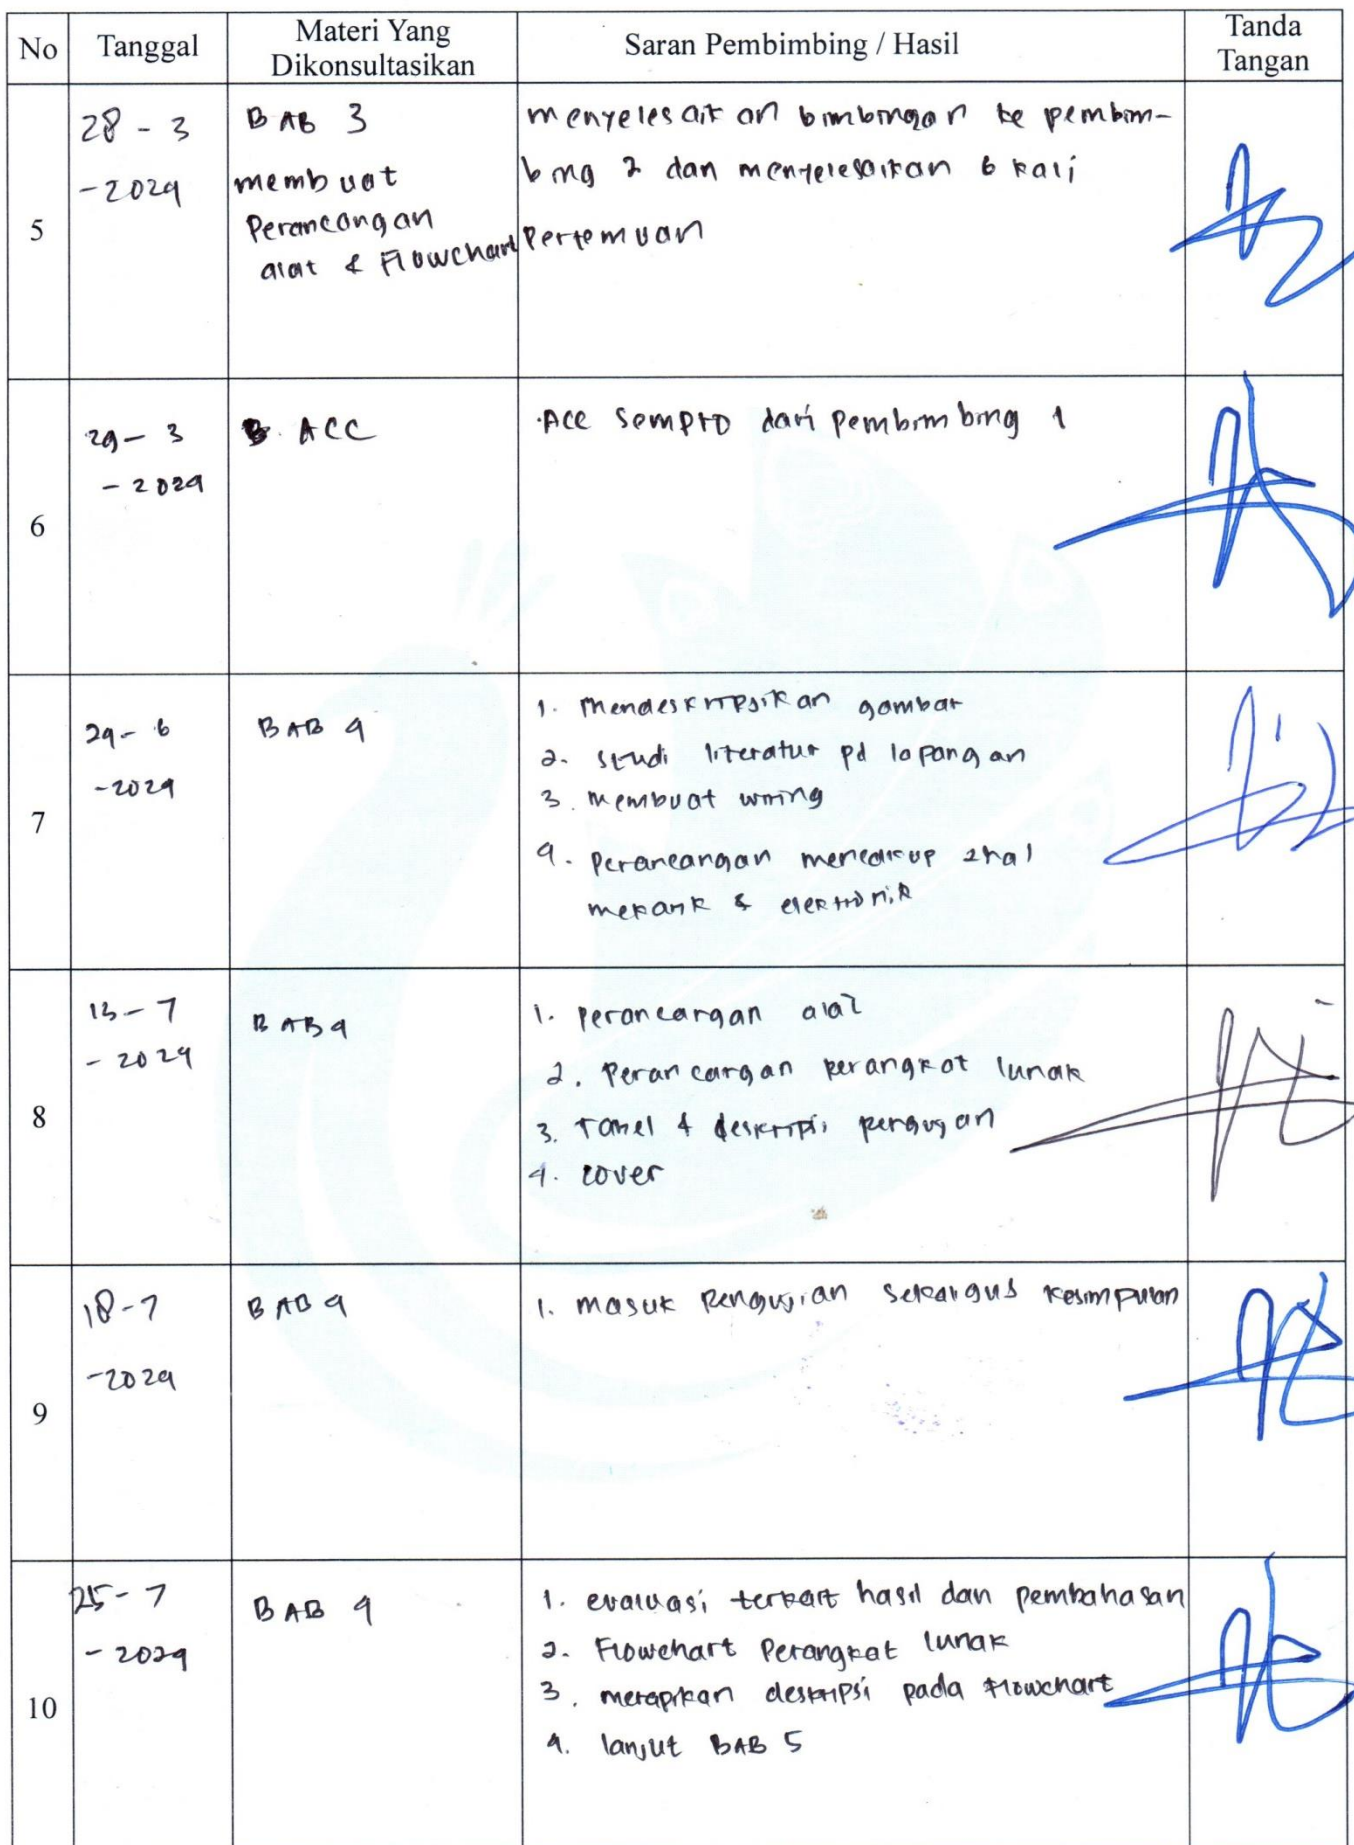 No Tanggal Materi Yang Dikonsultasikan Saran Pembimbing / Hasil Tanda Tangan
5
28 - 3
- 2024
BAB 3
membuat
Perancangan
alat & Flowchart
menyelesaikan bimbingan ke pembim-
bing 2 dan menyelesaikan 6 kali
Pertemuan
6
29 - 3
- 2024
ACC
ACC Sempro dari Pembimbing 1
7
24 - 6
- 2024
BAB 4
1. Mendeskripsikan gambar
2. Studi literatur pd lapangan
3. Membuat wiring
4. Perancangan mencakup 2 hal
mekanik & elektronik
8
13 - 7
- 2024
BAB 4
1. perancangan alat
2. Perancangan perangkat lunak
3. Tabel & deskripsi pengujian
4. cover
9
18 - 7
- 2024
BAB 4
1. masuk Pengujian sekaligus kesimpulan
10
25 - 7
- 2024
BAB 4
1. evaluasi terkait hasil dan pembahasan
2. Flowchart Perangkat lunak
3. merapikan deskripsi pada flowchart
4. lanjut BAB 5